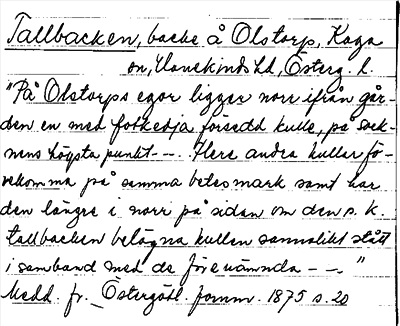 Tallbacken, backe å Olstorp, Kaga
sn, Hanekinds hd, Österg. l.
"På Olstorps egor ligger norr ifrån går-
den en med fotkedja försedd kulle, på sock-
nens högsta punkt - -. Flere andra kullar fö-
rekomma på samma betesmark samt har
den längre i norr på sidan om den s. k.
tallbacken belägna kullen sannolikt stått
i samband med de förenämnda - - "
Medd. fr. Östergötl. fornm. 1875 s. 20